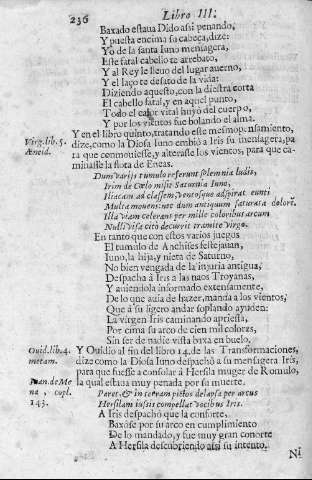 236
Libro III.
Baxado estaua Dido assi penando,
Y puesta encima su cabeça, dize:
Yo de la santa Iuno mensagera,
Este fatal cabello te arrebato,
Y al Rey le lleuo del lugar auerno,
Y el laço te desato de la vida:
Diziendo aquesto, con la diestra corta
El cabello fatal, y en aquel punto,
Todo el calor vital huyó del cuerpo,
Y por los vientos fue bolando el alma.
Y en el libro quinto, tratando este mesmo pensamiento,
Virg. lib. 5.
dize, como la Diosa Iuno embió a Iris su mensagera, pa
Æneid.
ra que conmouiesse, y alterasse los vientos, para que ca-
minasse la flota de Eneas.
Dum varijs tumulo referunt solemnia ludis,
Irim de Cœlo misit Saturnia Iuno,
Iliacam ad classem, ventosque adspirat eunti
Multa mouens: nec dum antiquum saturata dolorẽ.
Illa viam celerans per mille coloribus arcum
Nulli visa cito decurrit tramite virgo.
En tanto que con estos varios juegos
El tumulo de Anchises festejauan,
Iuno, la hija, y nieta de Saturno,
No bien vengada de la injuria antigua,
Despacha à Iris a las naos Troyanas,
Y auiendola informado extensamente,
De lo que auia de hazer, manda a los vientos,
Que à su ligero andar soplando ayuden:
La virgen Iris caminando apriessa,
Por cima su arco de cien mil colores,
Sin ser de nadie vista bixa en buelo.
Ouid. lib. 4.
Y Ouidio al fin del libro 14. de las Transformaciones,
metam.
dize como la Diosa Iuno despachò a su mensagera Iris,
para que fuesse a consolar à Hersila muger de Romulo,
Juan. de Me
la qual estaua muy penada por su muerte.
na, copl.
Paret, & in terram pictos delapsa per arcus
143.
Hersilam iussis compellat vocibus Iris.
A Iris despachò que la conforte,
Baxóse por su arco en cumplimiento
De lo mandado, y fue muy gran conorte
A Hersila descubriendo assi su intento.
Ni